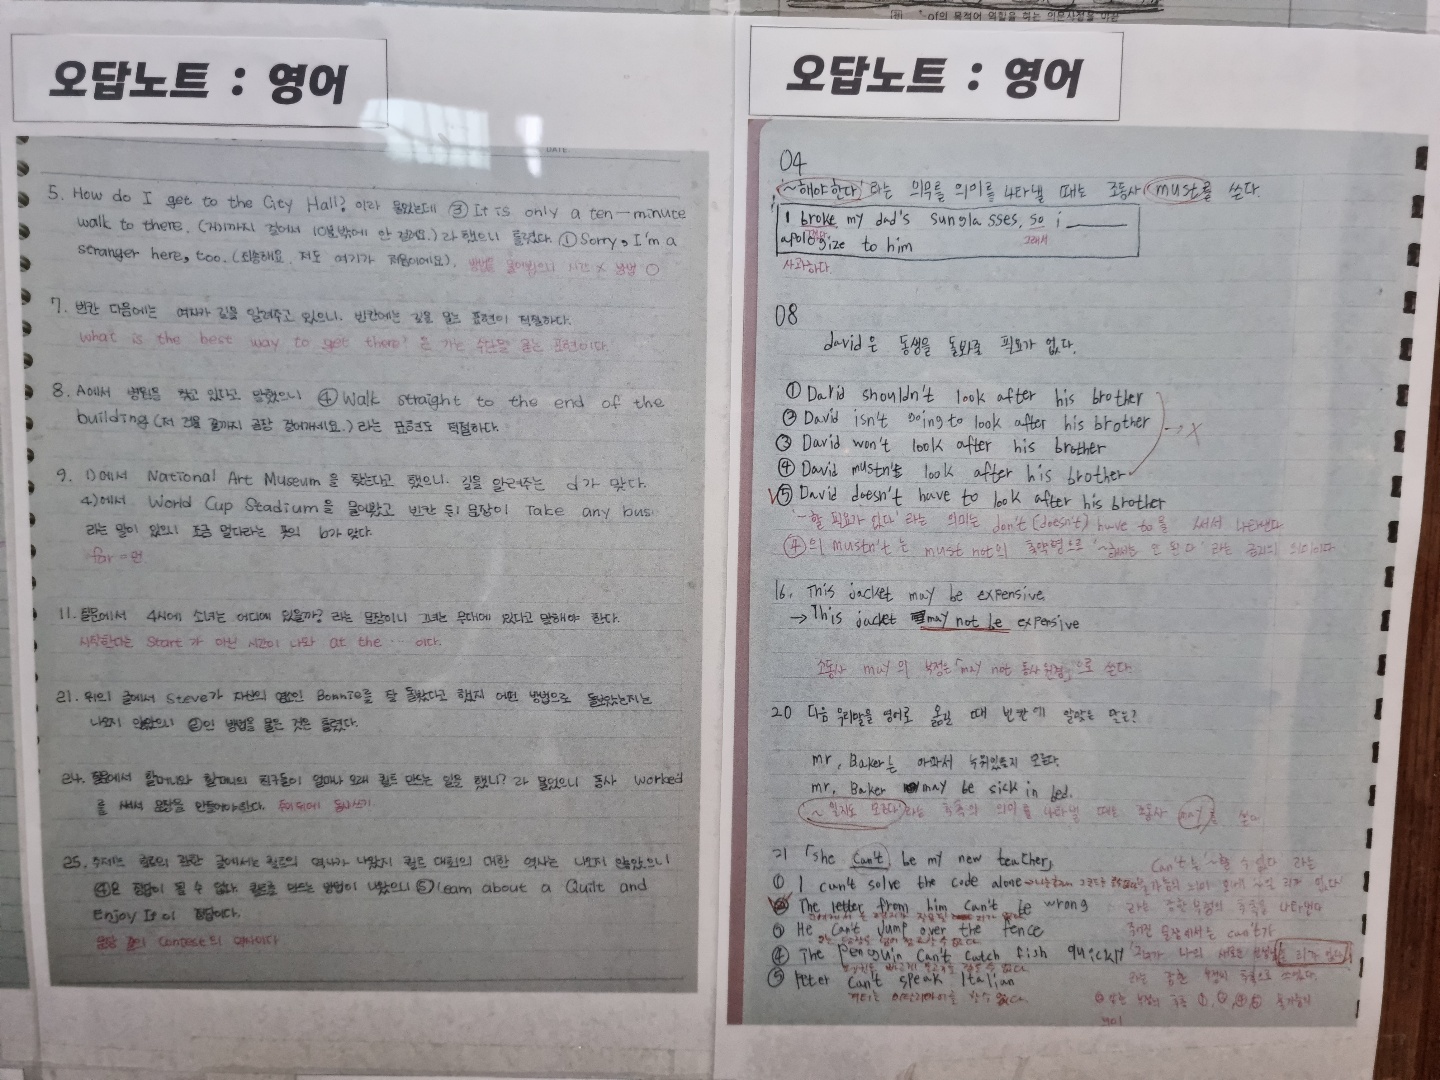 -of의 목적어 역할을 하는 의문사절을 이끈
오답노트 : 영어
DATE
5. How do I get to the City Hall? 이라 물었는데 ③ It is only a ten-minute
walk to there. (거기까지 걸어서 10분밖에 안 걸려요.)라 했으니 틀렸다. ① Sorry, I'm a
stranger here, too. (죄송해요. 저도 여기가 처음이에요). 방법을 물어봤으니 시간 X 방법 O
7. 빈칸 다음에는 여자가 길을 알려주고 있으니. 빈칸에는 길을 묻는 표현이 적절하다.
what is the best way to get there? 은 가는 수단을 묻는 표현이다.
8. A에서 병원을 찾고 있다고 말했으니 ④ Walk straight to the end of the
building (저 건물 끝까지 곧장 걸어가세요.) 라는 표현도 적절하다.
9. 1)에서 National Art Museum 을 찾는다고 했으니. 길을 알려주는 d가 맞다.
4)에서 World Cup Stadium을 물어봤고 빈칸 뒤 문장이 Take any bus
라는 말이 있으니 조금 멀다라는 뜻의 b가 맞다.
far = 먼
11. 질문에서 4시에 소녀는 어디에 있을까? 라는 문장이니 그녀는 무대에 있다고 말해야 한다.
시작한다는 Start 가 아닌 시간이 나와 at the … 이다.
21. 위의 글에서 Steve가 자신의 염소인 Bonnie를 잘 돌봤다고 했지 어떤 방법으로 돌보았는지는
나오지 않았으니 ②인 방법을 물은 것은 틀렸다.
24. 질문에서 할머니와 할머니의 친구들이 얼마나 오래 퀼트 만드는 일을 했니? 라 물었으니 동사 worked
를 써서 문장을 만들어야한다. 주어 뒤에 동사쓰기
25. 주제는 퀼트의 관한 글에서는 퀼트의 역사가 나왔지 퀼트 대회의 대한 역사는 나오지 않았으니
④은 정답이 될 수 없다. 퀼트를 만드는 방법이 나왔으니 ⑤ Learn about a Quilt and
Enjoy It 이 정답이다.
Contest의 역사이다
오답노트 : 영어
04
'~해야한다' 라는 의무를 의미를 나타낼 때는 조동사 must를 쓴다.
I broke my dad's sunglasses, so i ______
그래서
apologize to him
사과하다.
08
david은 동생을 돌봐줄 필요가 없다.
① David shouldn't look after his brother
② David isn't going to look after his brother → X
③ David won't look after his brother
④ David mustn't look after his brother
⑤ David doesn't have to look after his brother
'~할 필요가 없다' 라는 의미는 don't (doesn't) have to를 써서 나타낸다
④의 mustn't 는 must not의 축약형으로 '~해서는 안 된다' 라는 금지의 의미이다
16. This jacket may be expensive.
→ This jacket may not be expensive
조동사 may 의 부정은 「may not 동사원형」으로 쓴다.
20 다음 우리말을 영어로 옮길 때 빈칸에 알맞은 말은?
mr. Baker는 아파서 누워있을지 모른다.
mr. Baker may be sick in bed.
'~일지도 모른다'라는 추측의 의미를 나타낼 때는 조동사 may를 쓴다
21 「she can't be my new teacher」
can't는 '~할 수 없다' 라는
① I can't solve the code alone
② The letter from him can't be wrong
라는 강한 부정의 추측을 나타낸다
③ He can't jump over the fence
주어진 문장에서는 can't가
④ The penguin can't catch fish quickly
'그녀가 나의 새로운 선생님일 리가 없다'
⑤ Peter can't speak Italian
라는 강한 부정의 추측으로 쓰였다.